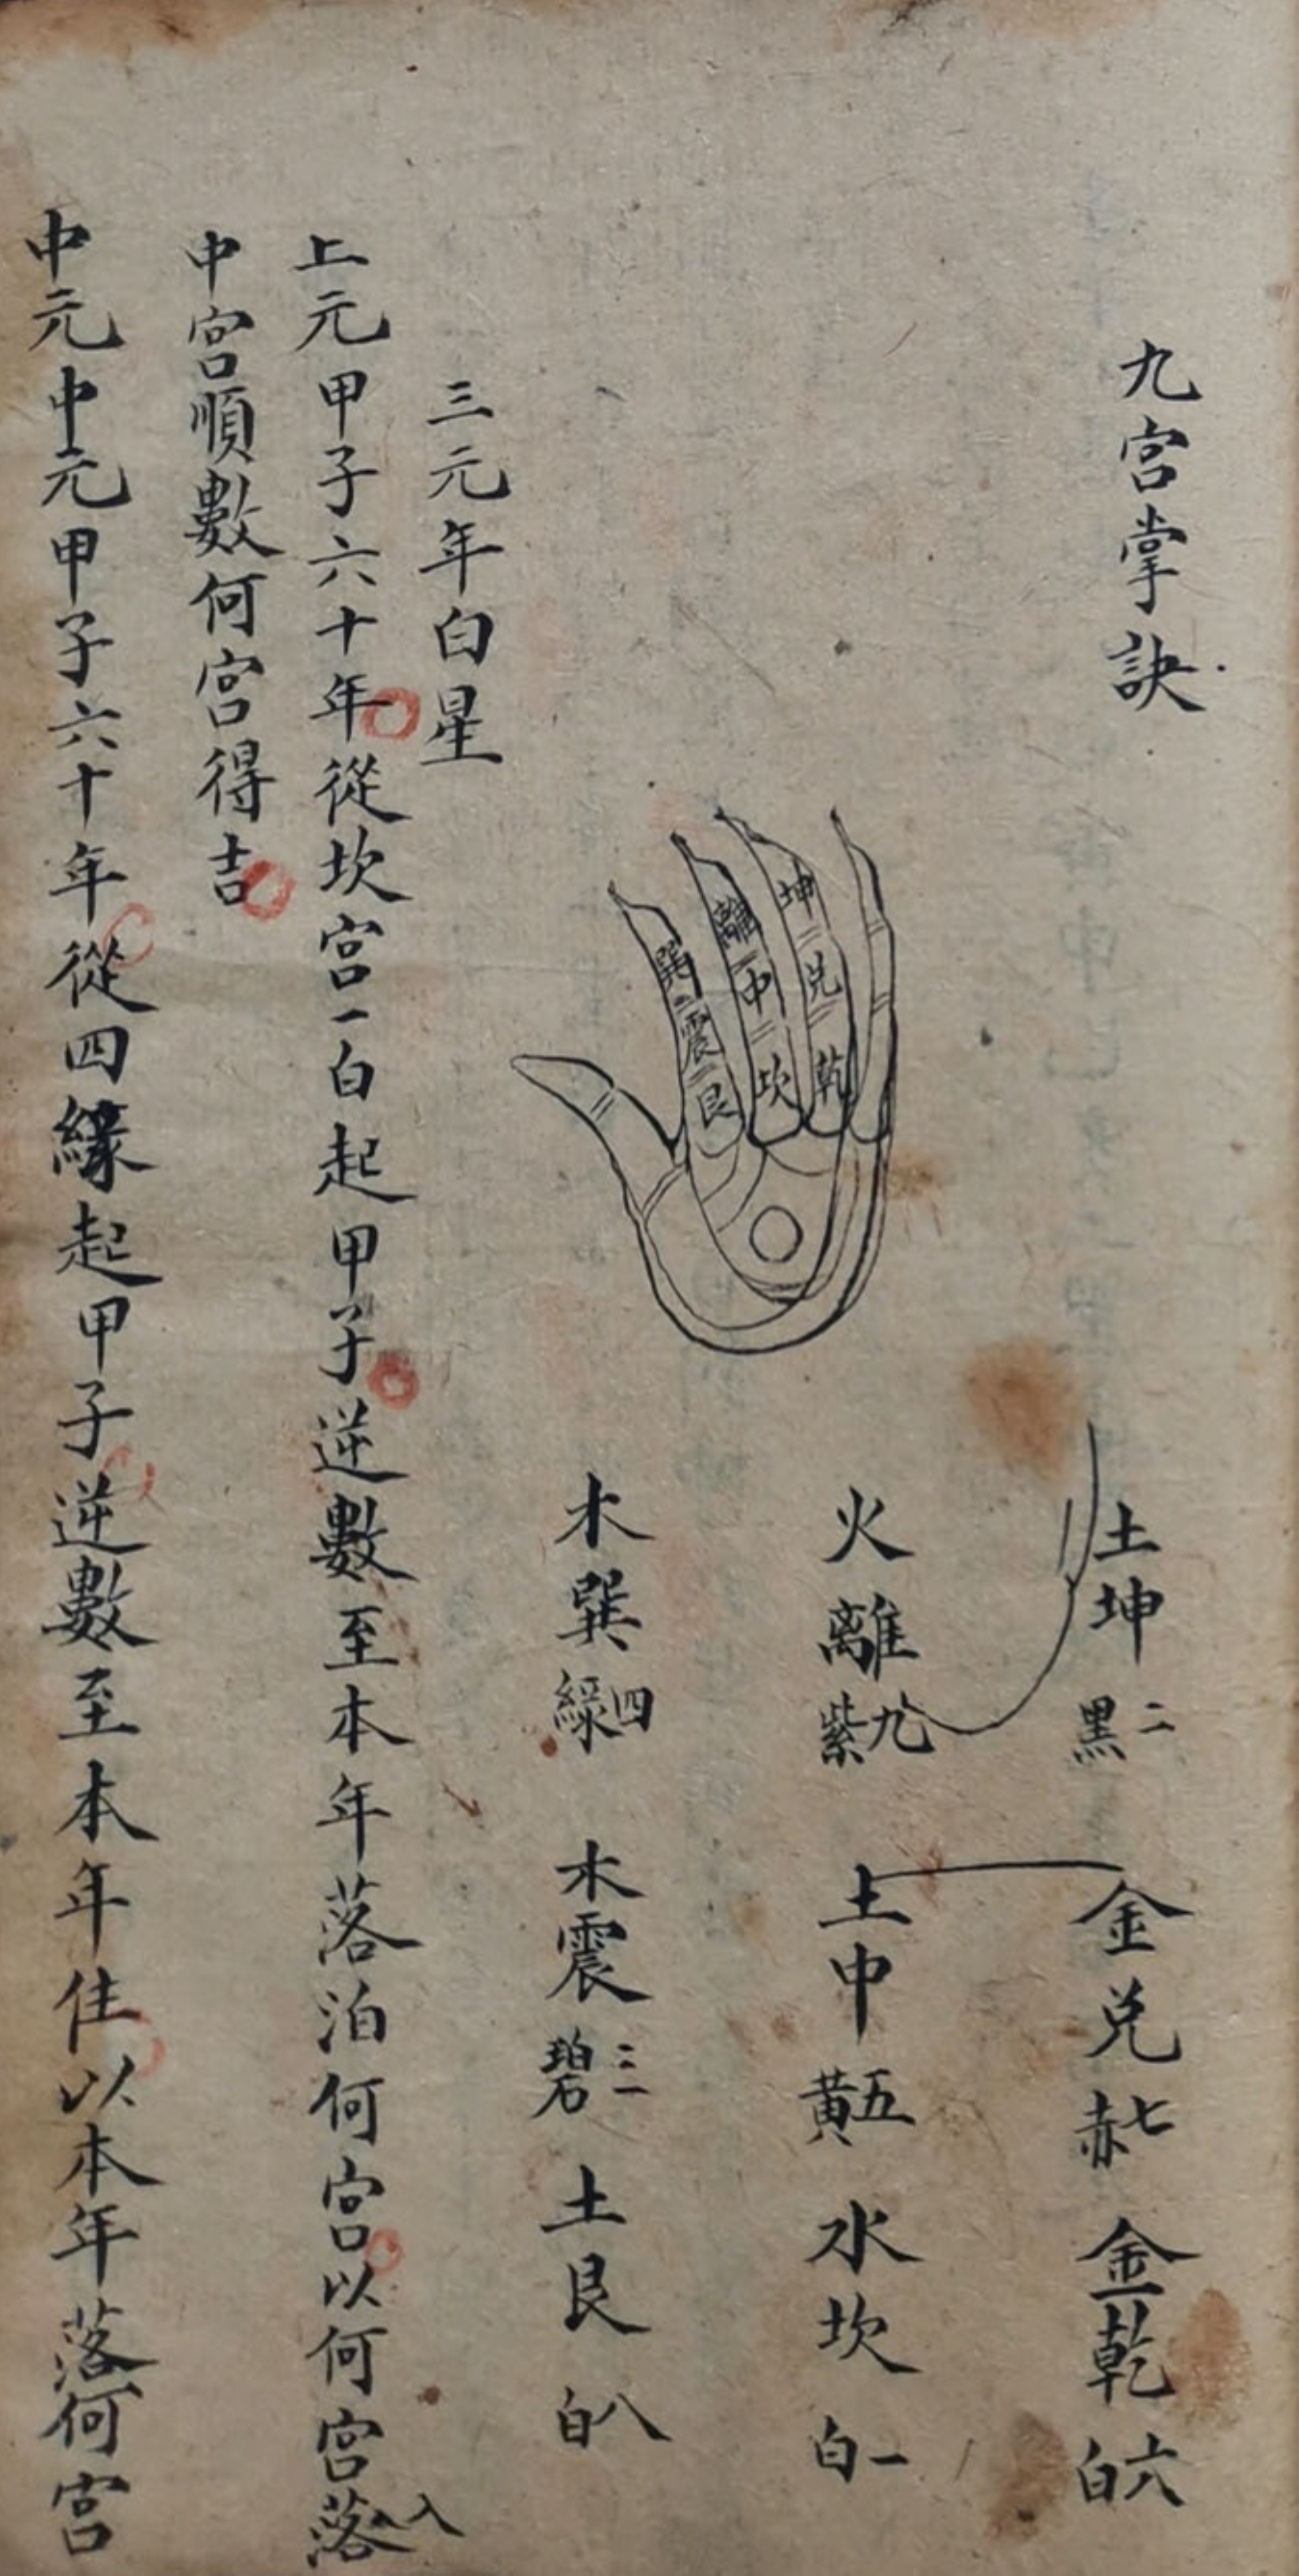 九宮掌訣
坤兑乾
離中坎
巽震艮
土坤二黑 金兑七赤 金乾六白
火離九紫 土中五黃 水坎一白
木巽四綠 木震三碧 土艮八白
三元年白星
上元甲子六十年從坎宮一白起甲子逆數至本年落泊何宮以何宮落入
中宮順數何宮得吉
中元中元甲子六十年從四緣起甲子逆數至本年住以本年落何宮